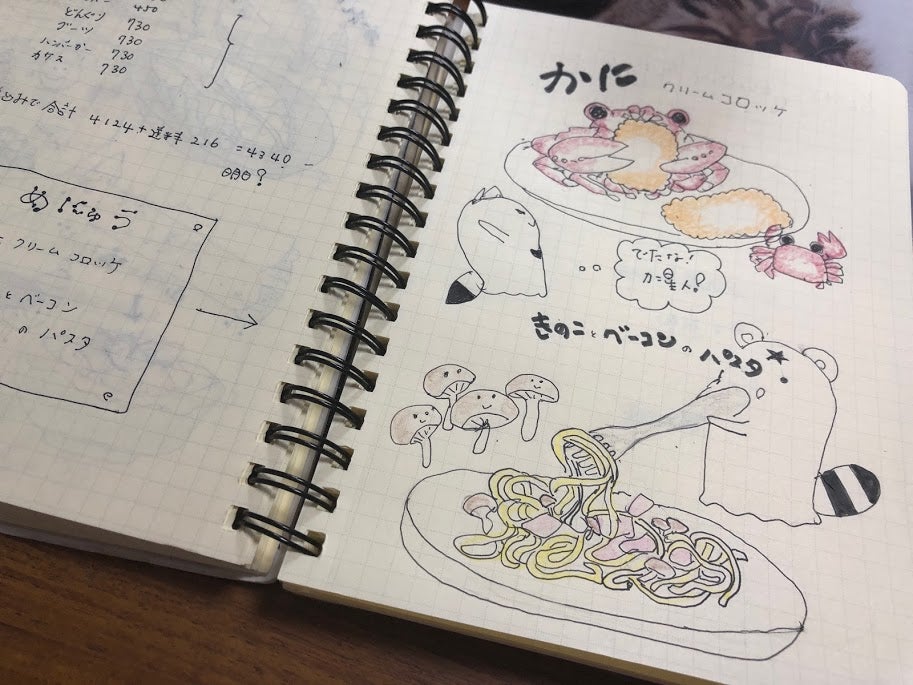 450
どんぐり 730
ブーツ 730
ハンバーガー 730
カサス 730
で合計 4124+送料 216 =4340-
?
めにゅう
クリームコロッケ
とベーコン
のパスタ
かに
クリームコロッケ
でたな!
カニ星人!
きのことベーコンのパスタ